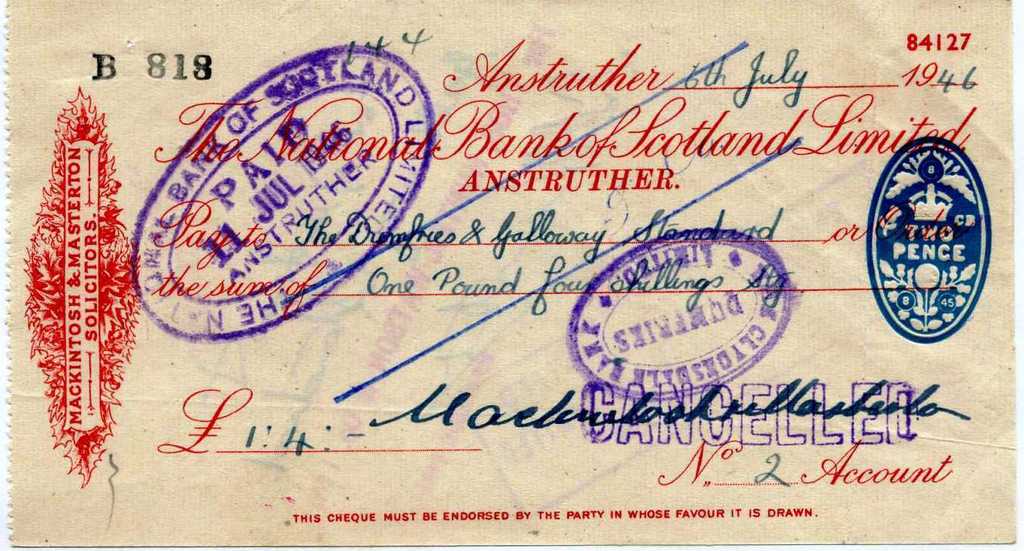 84127
B 818
144
Anstruther 6th July 1946
The National Bank of Scotland Limited
ANSTRUTHER.
Pay to The Dumfries & Galloway Standard or Order
the sum of One Pound four shillings Stg
£ 1:4:-
Mackintosh & Masterton
No. 2 Account
THIS CHEQUE MUST BE ENDORSED BY THE PARTY IN WHOSE FAVOUR IT IS DRAWN.
MACKINTOSH & MASTERTON
SOLICITORS.
THE NATIONAL BANK OF SCOTLAND LIMITED
PAID
11 JUL 1946
ANSTRUTHER
CLYDESDALE BANK LIMITED
DUMFRIES
CANCELLED
8
PENCE
8 45